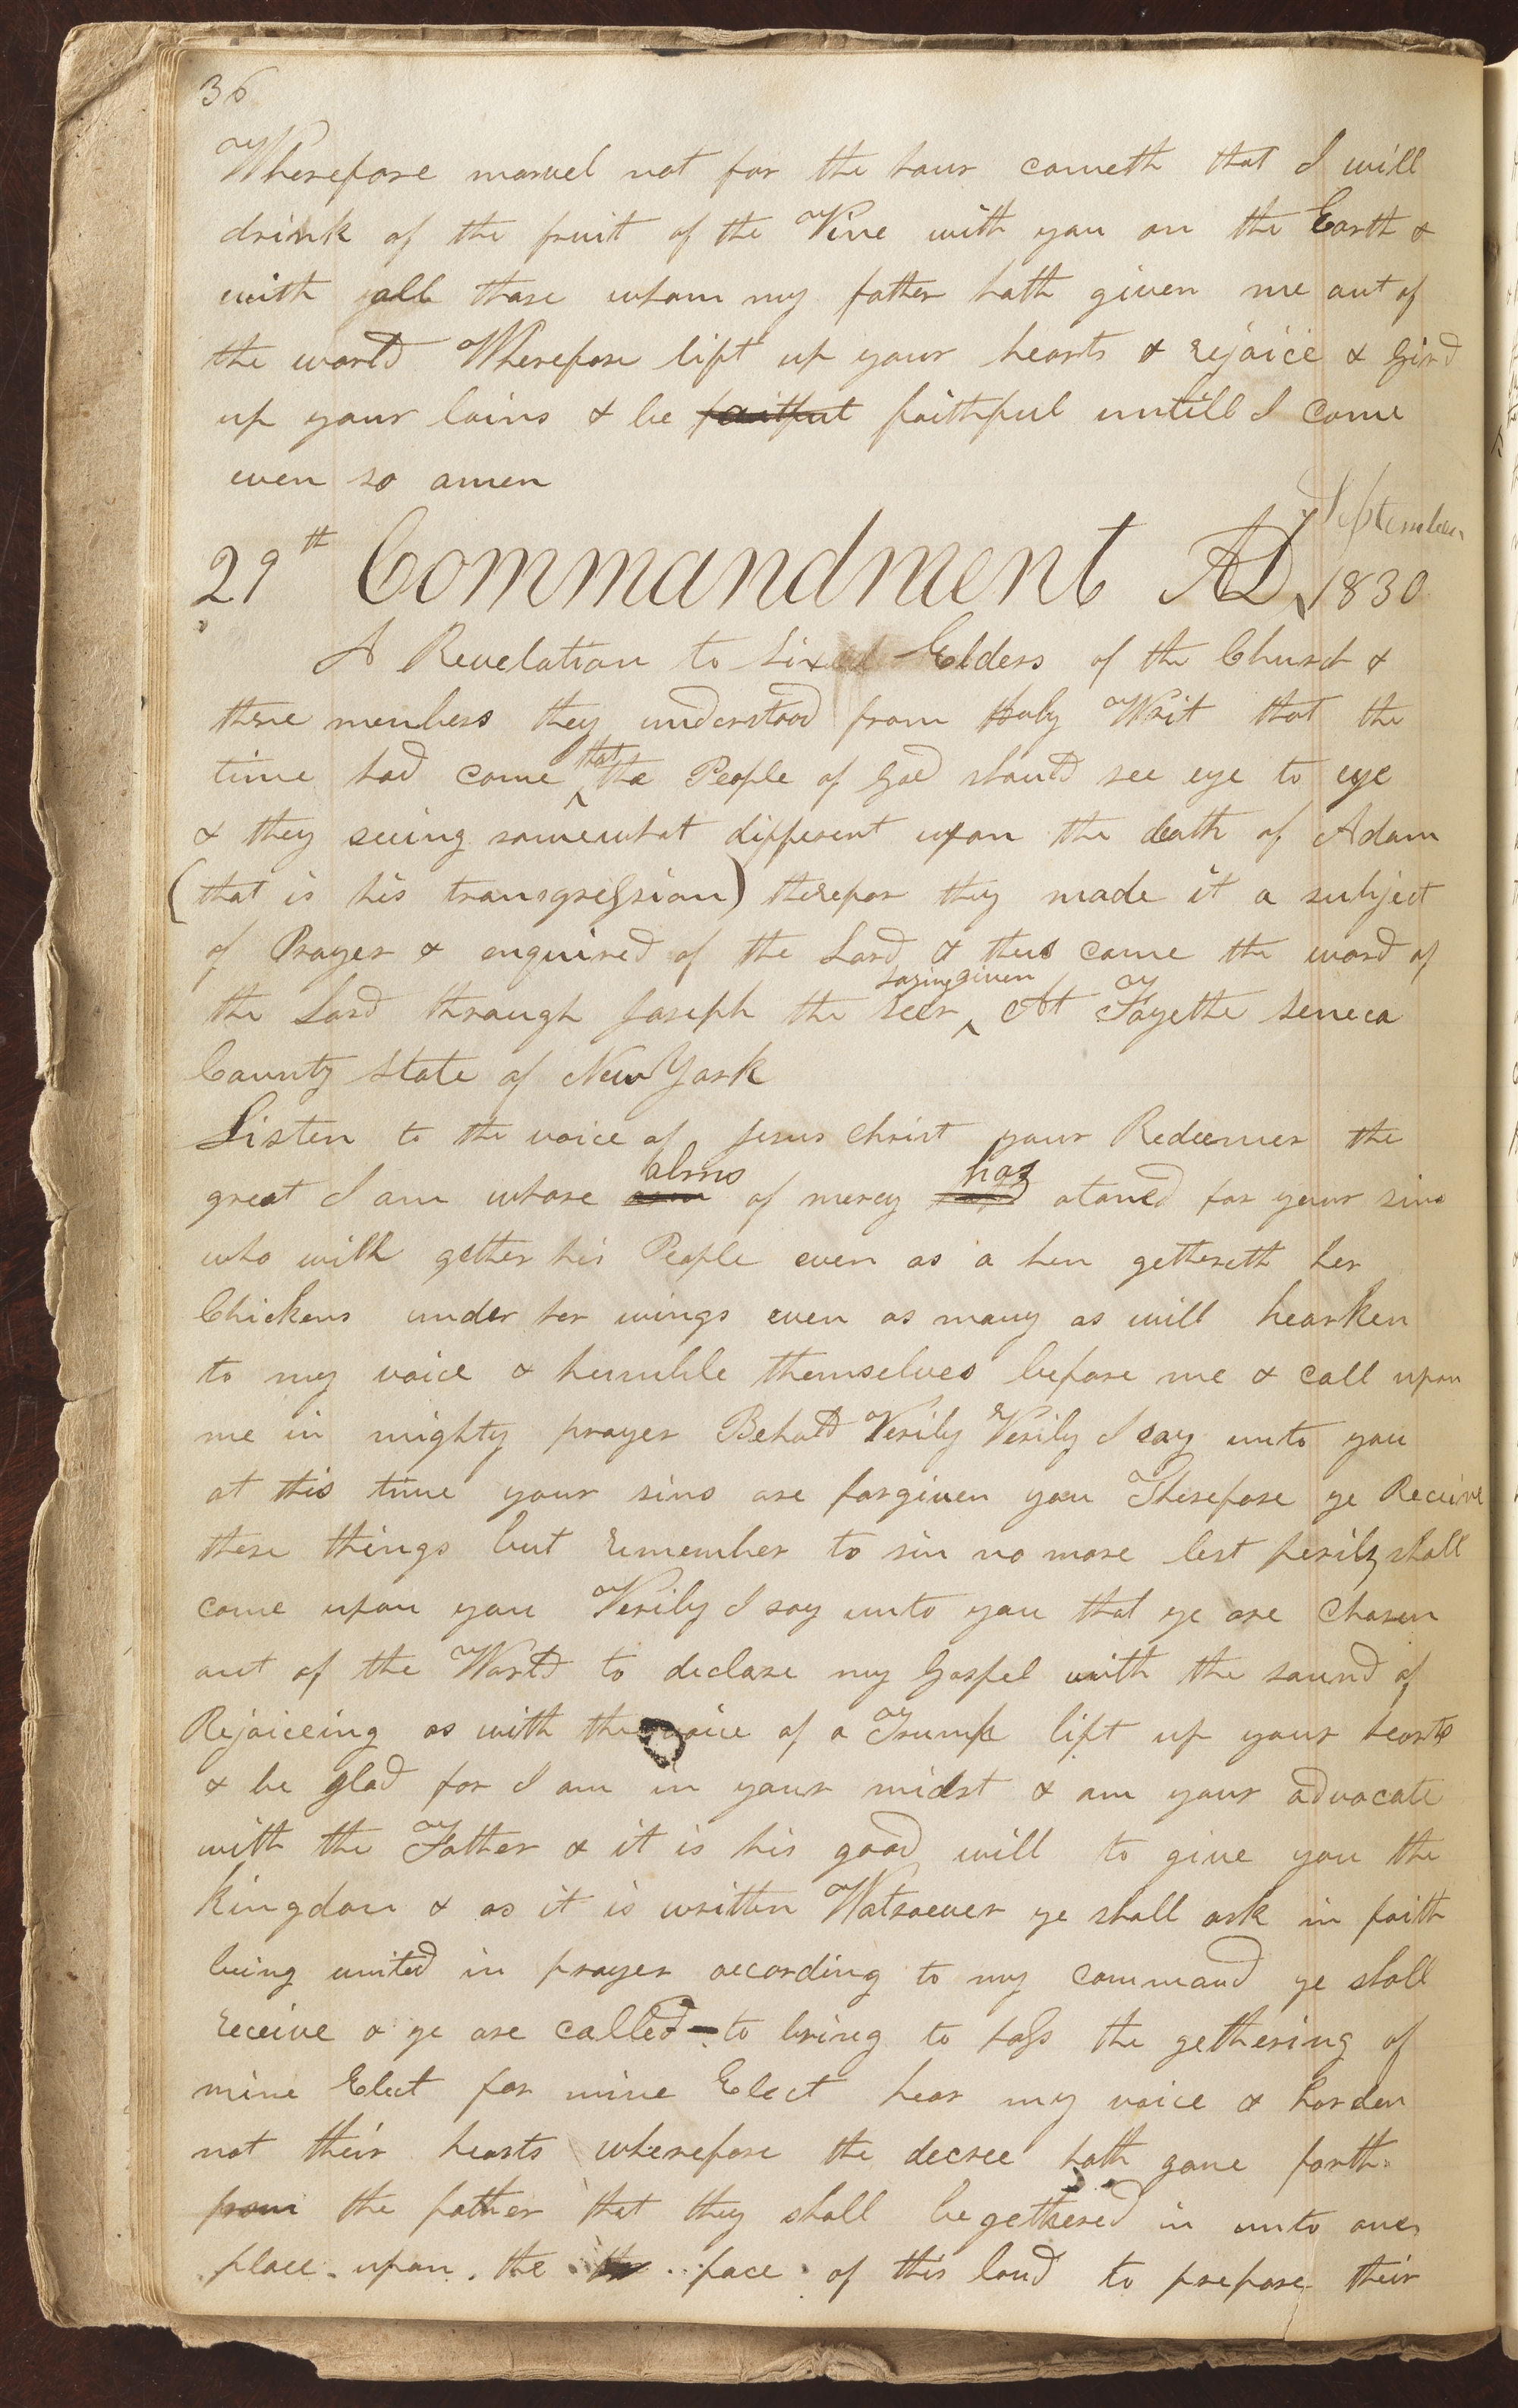 36
Wherefore marvel not for the hour cometh that I will
drink of the fruit of the Vine with you on the Earth &
with all those whom my father hath given me out of
the world Wherefore lift up your hearts & rejoice & Gird
up your loins & be faitful faithful untill I come
even so amen
September
29th Commandment AD 1830
A Revelation to Six Elders of the Church &
three members they understood from Holy Writ that the
time had come that the People of God should see eye to eye
& they seeing somewhat different upon the death of Adam
(that is his transgression) therefor they made it a subject
of Prayer & enquired of the Lord & thus came the word of
saying given
the Lord through Joseph the seer At Fayette Seneca
County State of New York
Listen to the voice of Jesus Christ your Redeemer the
alms has
great I am whose arm of mercy hath atoned for your sins
who will gether his People even as a hen gethereth her
Chickens under her wings even as many as will hearken
to my voice & humble themselves before me & call upon
me in mighty prayer Behold Verily Verily I say unto you
at this time your sins are forgiven you Therefore ye Receive
these things but remember to sin no more lest perils shall
come upon you Verily I say unto you that ye are Chosen
out of the World to declare my Gospel with the sound of
Rejoiceing as with the voice of a Trump lift up your hearts
& be glad for I am in your midst & am your advocate
with the Father & it is his good will to give you the
kingdom & as it is written Watsoever ye shall ask in faith
being united in prayer according to my command ye shall
receive & ye are called to bring to pass the gethering of
mine Elect for mine Elect hear my voice & harden
not their hearts wherefore the decree hath gone forth
from the father that they shall be gethered in unto one
place upon the face of this land to prepare their